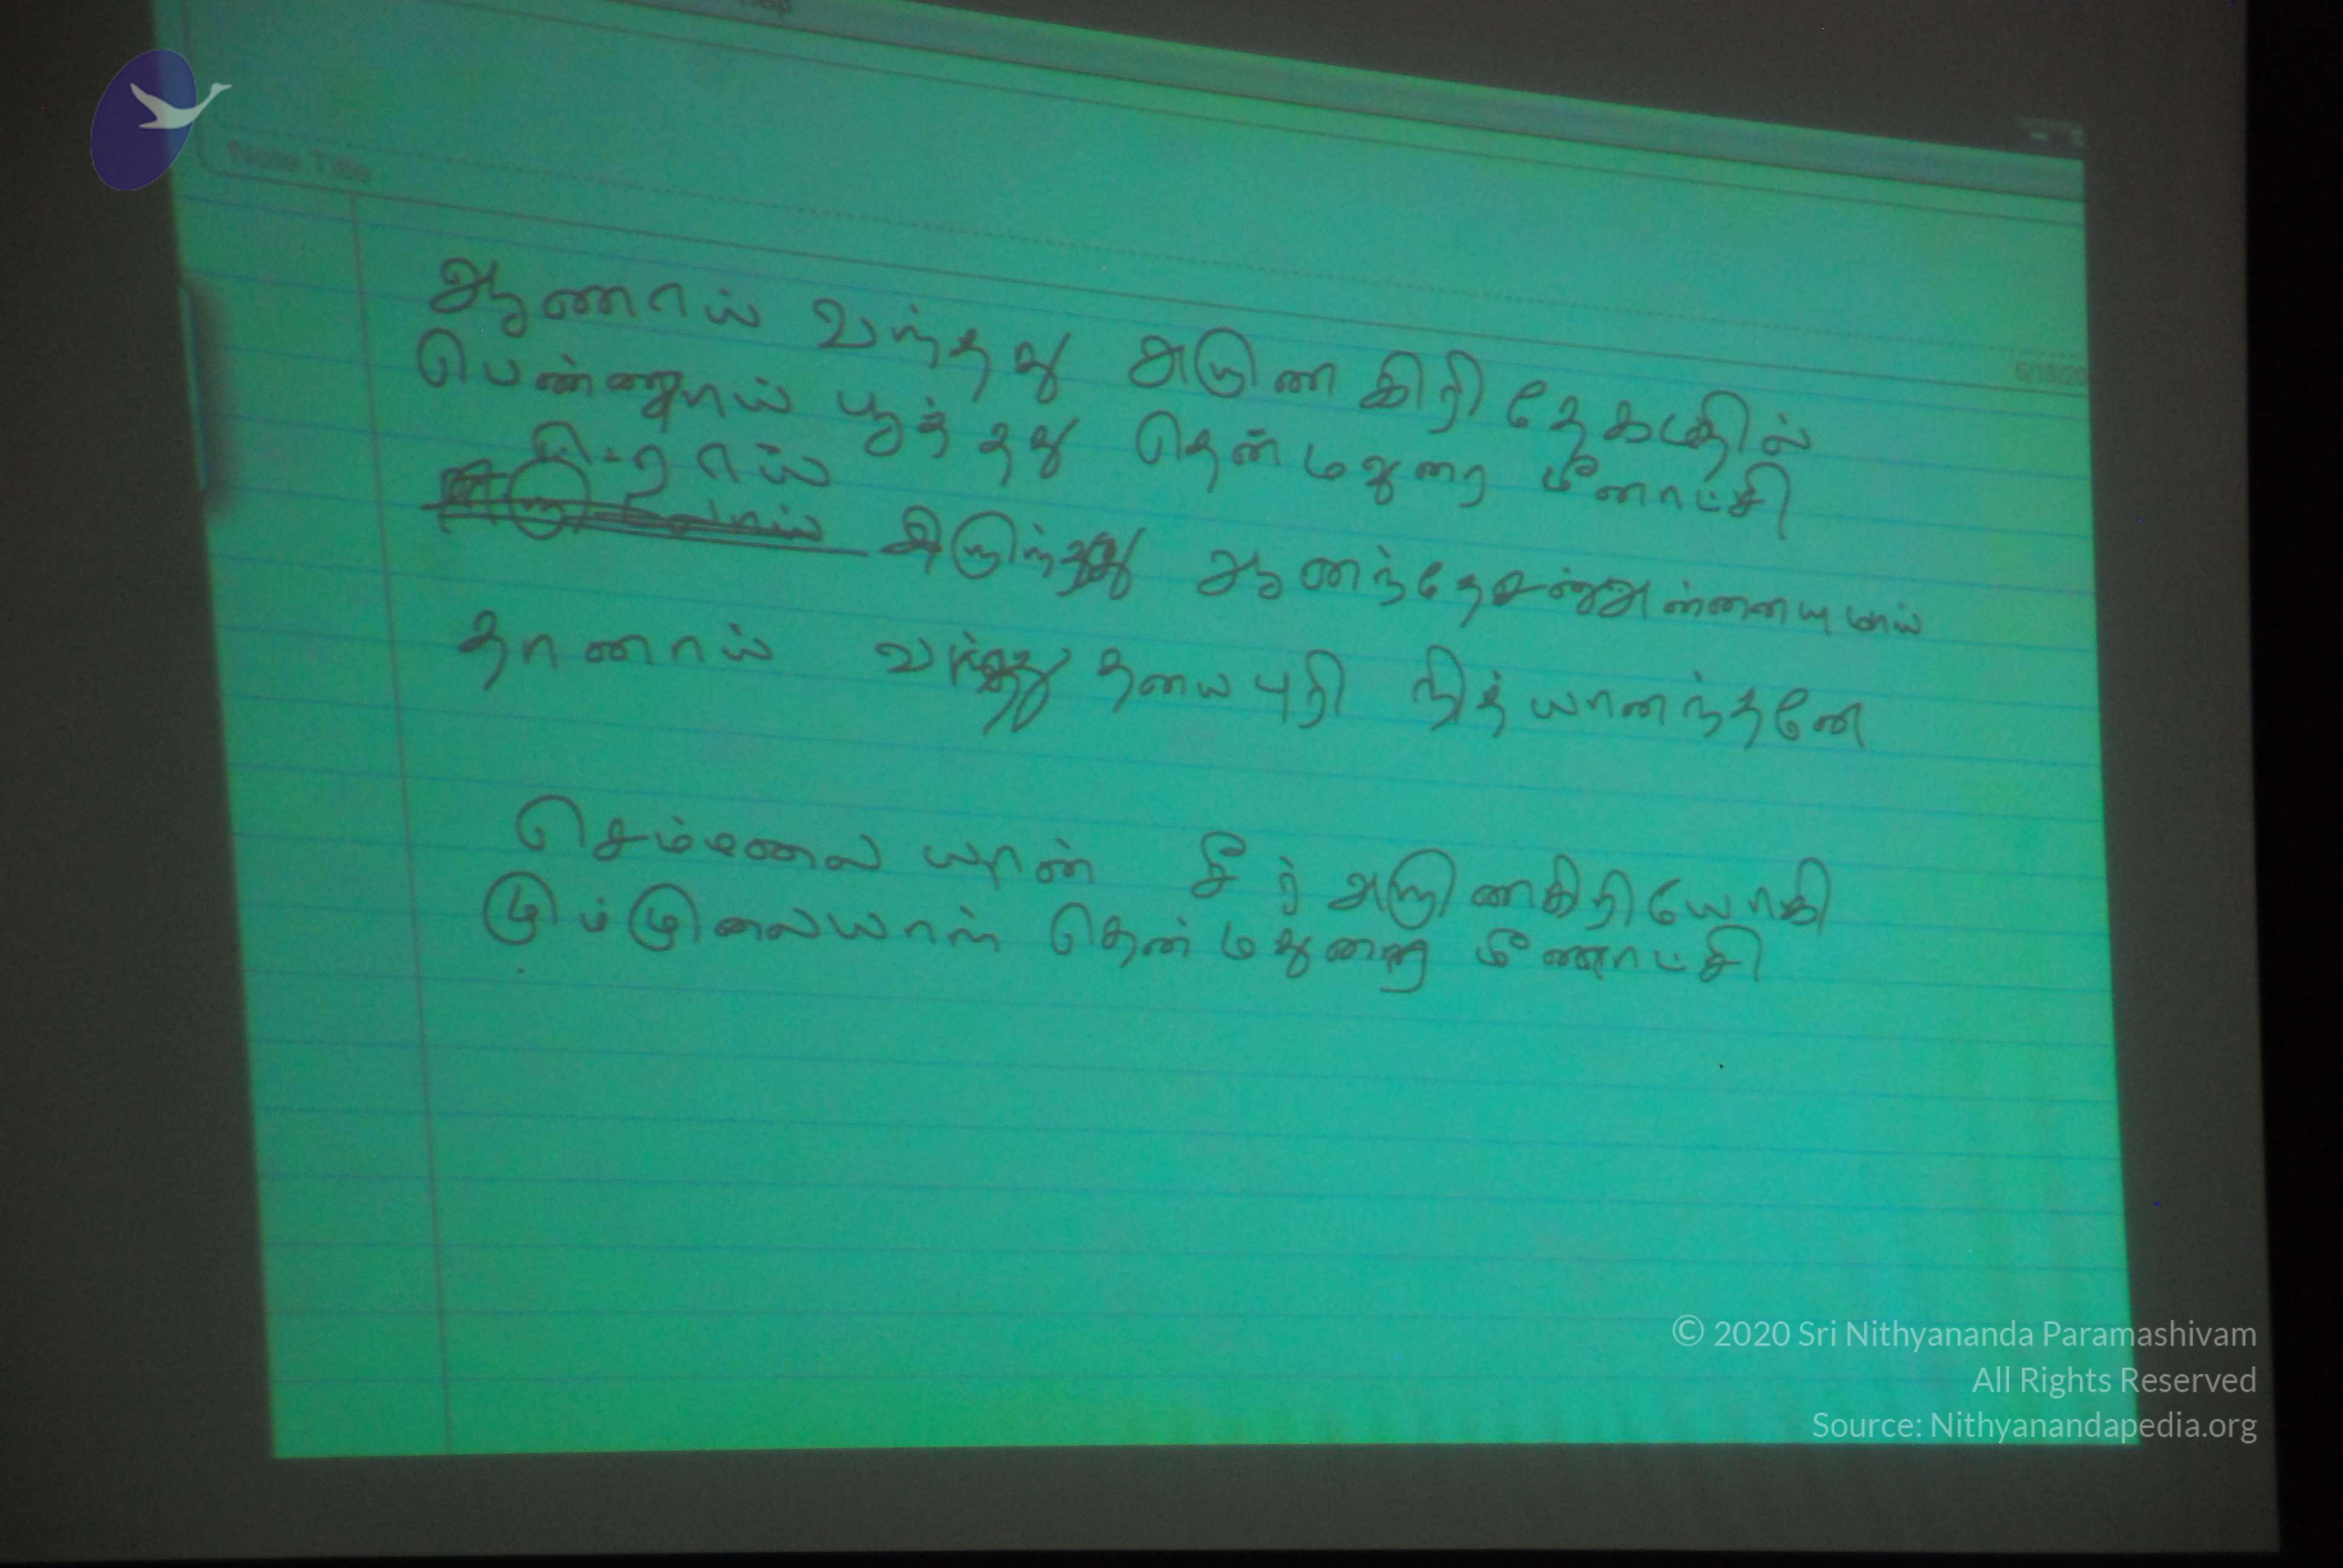 Help
Note Title
6/18/20
ஆணாய் வந்தது அருண கிரி தேகத்தில்
பெண்ணாய் பூத்தது தென் மதுரை மீனாட்சி
இருந்து ஆனந்தேசன் அன்னையுமாய்
தானாய் வந்து தயை புரி நித்யானந்தனே
செம்மலை யான் சீர் அருணகிரியோகி
மும்முலையாள் தென் மதுரை மீனாட்சி
© 2020 Sri Nithyananda Paramashivam
All Rights Reserved
Source: Nithyanandapedia.org